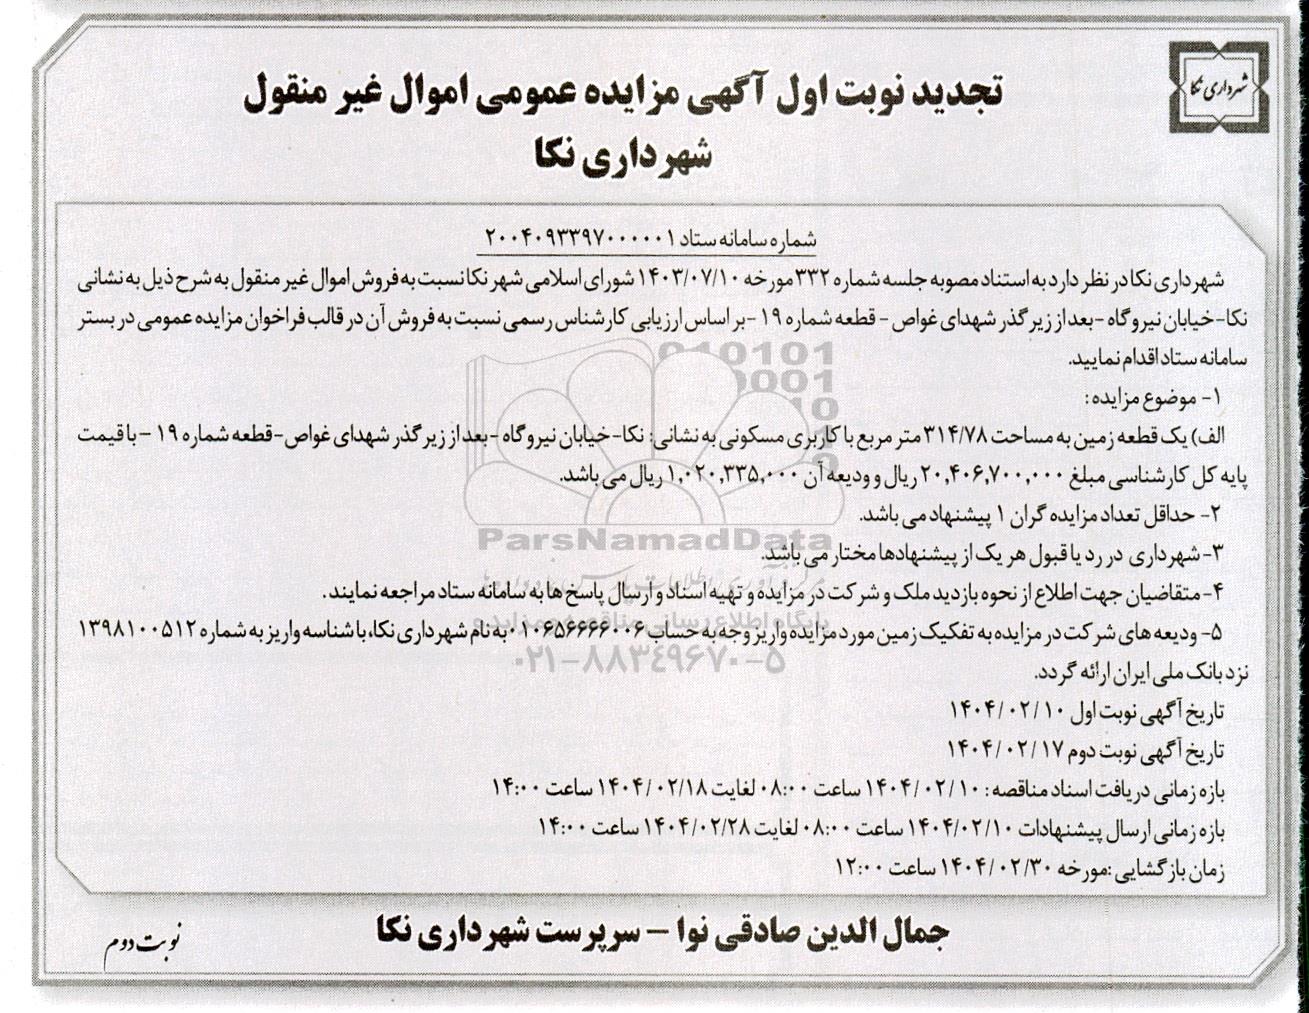 شهرداری نکا
تجدید نوبت اول آگهی مزایده عمومی اموال غیر منقول
شهرداری نکا
شماره سامانه ستاد ۲۰۰۴۰۹۳۳۹۷۰۰۰۰۰۱
شهرداری نکا در نظر دارد به استناد مصوبه جلسه شماره ۳۳۲ مورخه ۱۴۰۳/۰۷/۱۰ شورای اسلامی شهر نکا نسبت به فروش اموال غیر منقول به شرح ذیل به نشانی
نکا-خیابان نیروگاه -بعد از زیر گذر شهدای غواص - قطعه شماره ۱۹ -بر اساس ارزیابی کارشناس رسمی نسبت به فروش آن در قالب فراخوان مزایده عمومی در بستر
سامانه ستاد اقدام نمایید.
۱- موضوع مزایده :
الف) یک قطعه زمین به مساحت ۳۱۴/۷۸ متر مربع با کاربری مسکونی به نشانی: نکا-خیابان نیروگاه -بعد از زیر گذر شهدای غواص-قطعه شماره ۱۹ - با قیمت
پایه کل کارشناسی مبلغ ۲۰,۴۰۶,۷۰۰,۰۰۰ ریال و ودیعه آن ۱,۰۲۰,۳۳۵,۰۰۰ ریال می باشد.
۲- حداقل تعداد مزایده گران ۱ پیشنهاد می باشد.
۳-شهرداری در رد یا قبول هر یک از پیشنهادها مختار می باشد.
۴-متقاضیان جهت اطلاع از نحوه بازدید ملک و شرکت در مزایده و تهیه اسناد و ارسال پاسخ ها به سامانه ستاد مراجعه نمایند .
۵- ودیعه های شرکت در مزایده به تفکیک زمین مورد مزایده واریز وجه به حساب ۰۱۰۶۵۶۶۶۶۰۰۶ به نام شهرداری نکا، با شناسه واریز به شماره ۱۳۹۸۱۰۰۵۱۲
نزد بانک ملی ایران ارائه گردد.
تاریخ آگهی نوبت اول ۱۴۰۴/۰۲/۱۰
تاریخ آگهی نوبت دوم ۱۴۰۴/۰۲/۱۷
بازه زمانی دریافت اسناد مناقصه : ۱۴۰۴/۰۲/۱۰ ساعت ۰۸:۰۰ لغایت ۱۴۰۴/۰۲/۱۸ ساعت ۱۴:۰۰
بازه زمانی ارسال پیشنهادات ۱۴۰۴/۰۲/۱۰ ساعت ۰۸:۰۰ لغایت ۱۴۰۴/۰۲/۲۸ ساعت ۱۴:۰۰
زمان بازگشایی :مورخه ۱۴۰۴/۰۲/۳۰ ساعت ۱۲:۰۰
جمال الدین صادقی نوا - سرپرست شهرداری نکا
نوبت دوم
ParsNamadData
پایگاه اطلاع رسانی مناقصه و مزایده
۰۲۱-۸۸۳۴۹۶۷۰-۵